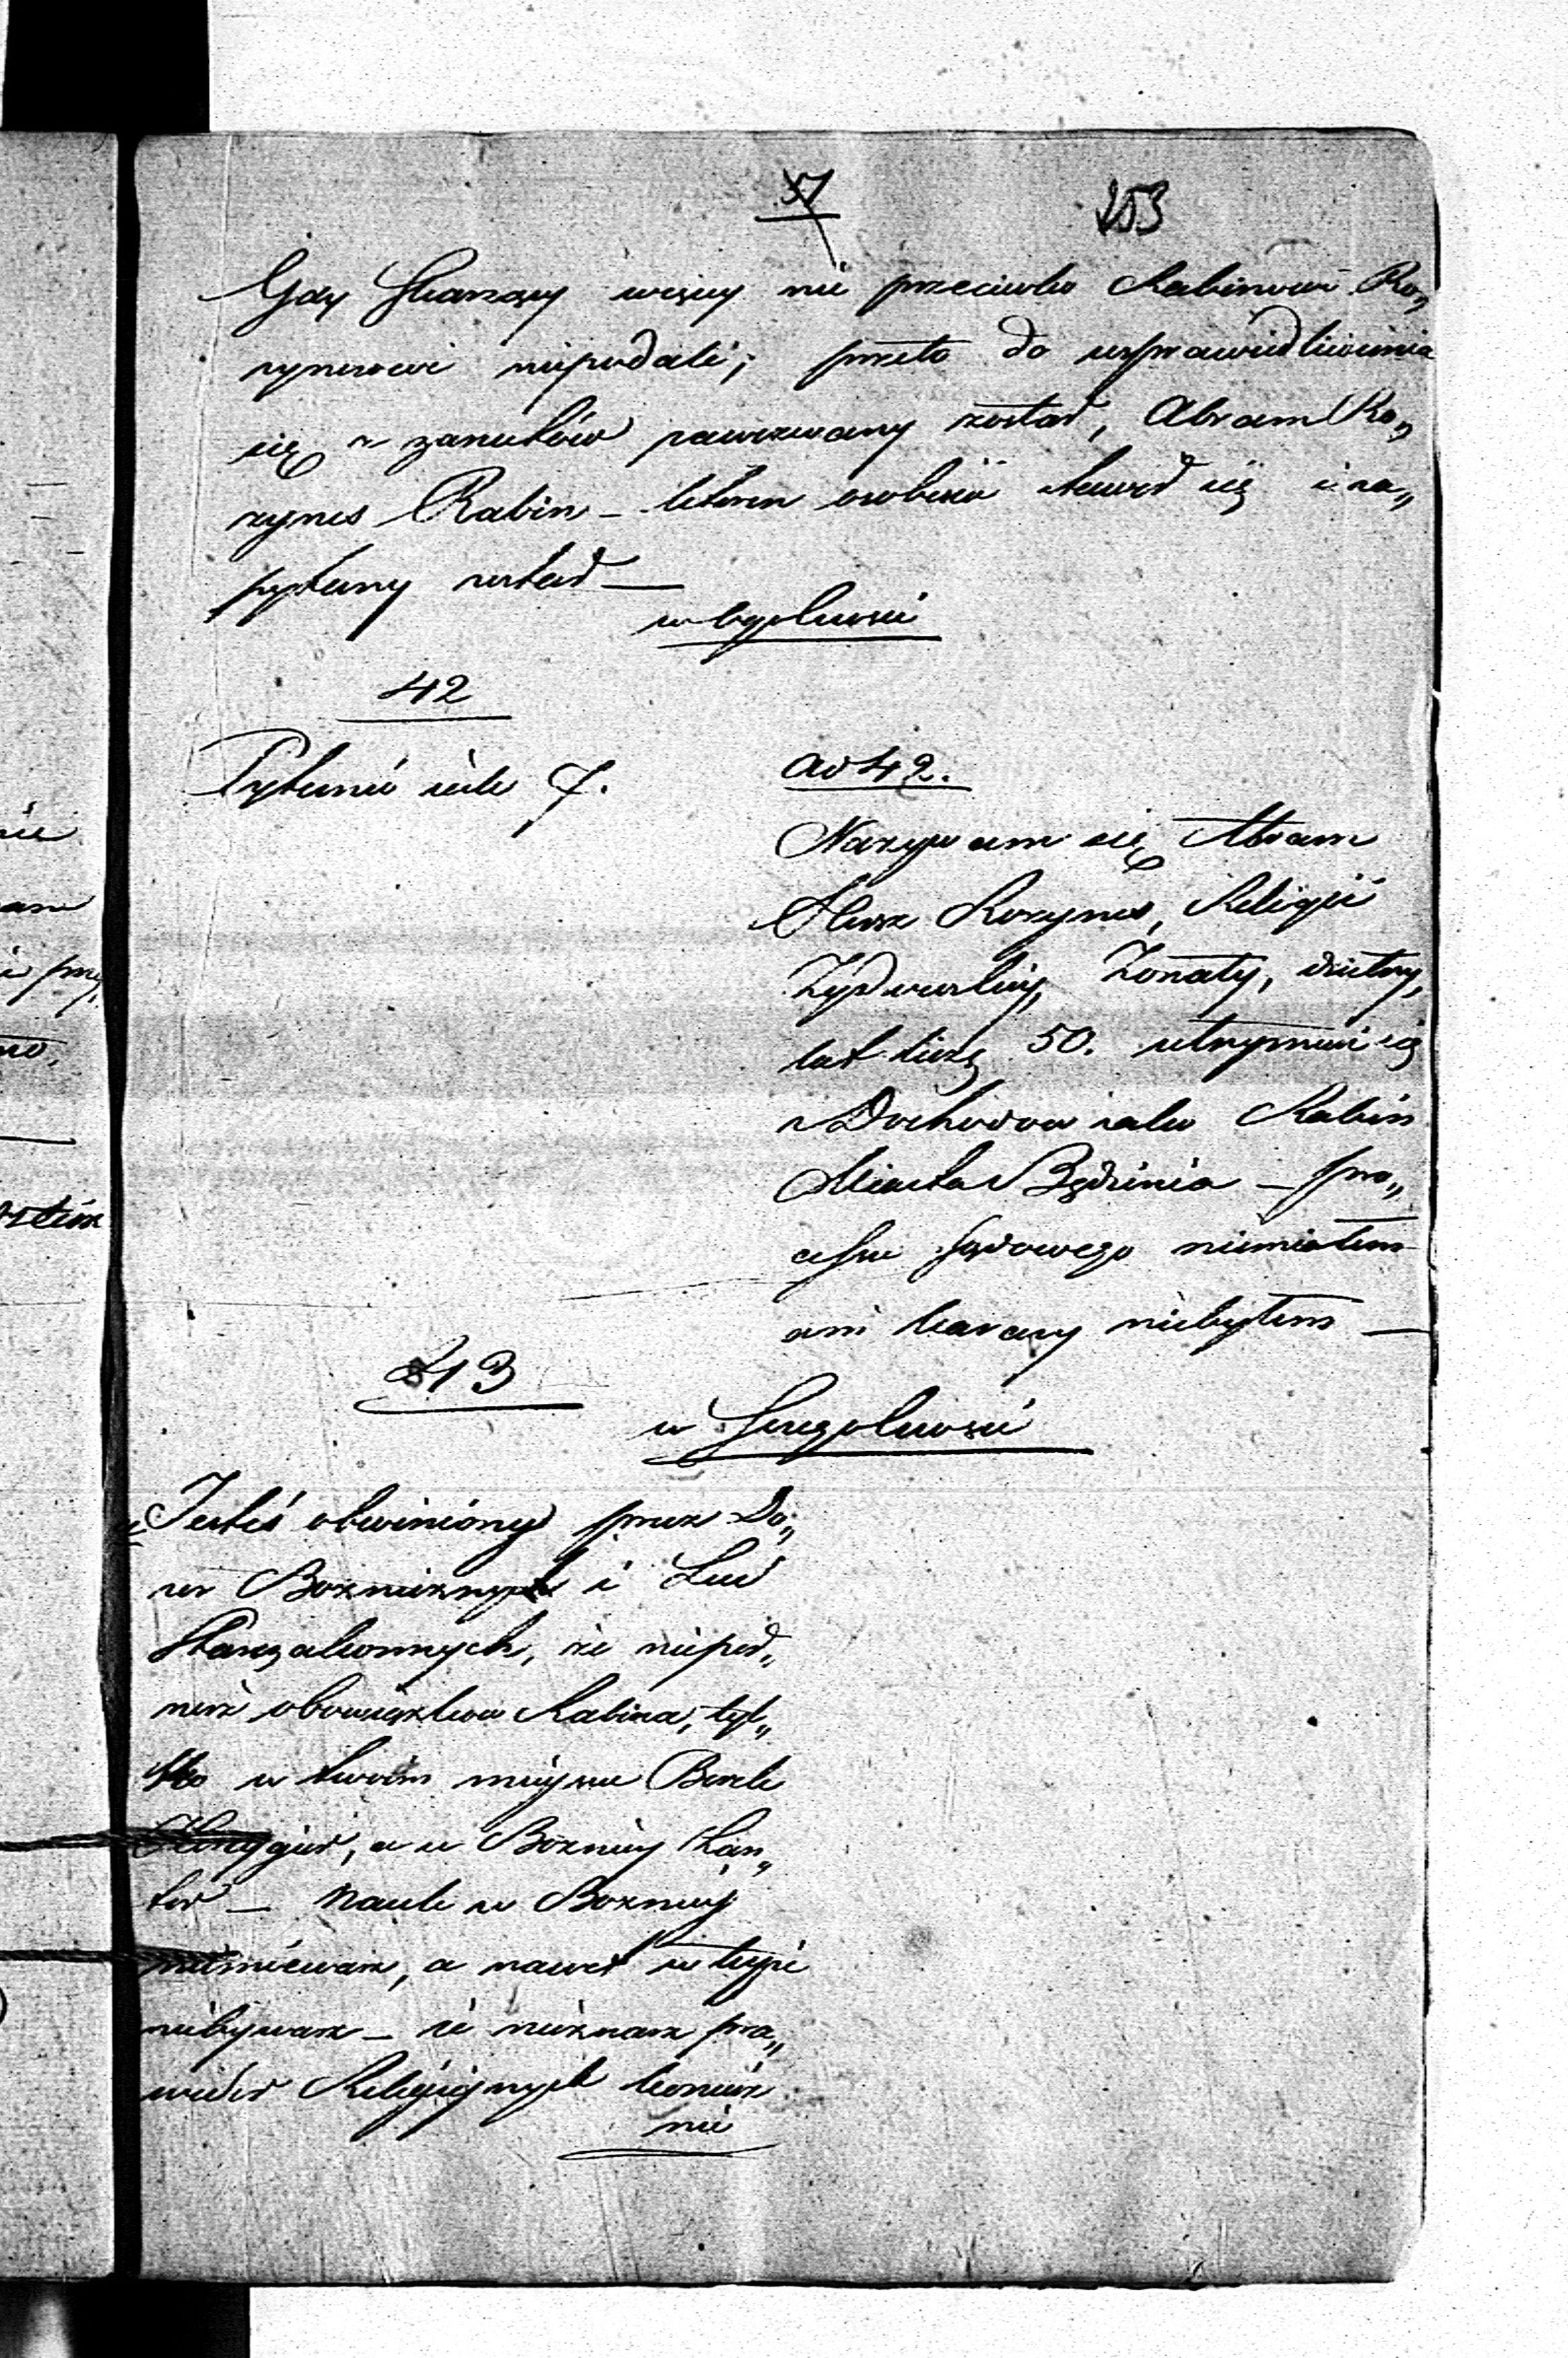 57 253
Gdy Skarżący więcy nic przeciwko Rabinowi Ro„
zynesowi niepodali; przeto do usprawiedliwienia
się z zarzutów zawezwany został, Abram Ro„
zynes Rabin – któren osobiście stawił się i za„
pytany został —
w ogólności
42
Pytanie jak 7.
ad 42.
Nazywam się Abram
Hersz Rozynes, Religii
Żydowskiy, Żonaty, dzietny,
lat liczę 50. utrzymuię się
z Dochodów jako Rabin
Miasta Będzinia – pro„
cessu sądowego niemiałem
ani karany niebyłem —
43
w Szczególności
Jesteś obwiniony przez Do„
zór Bożniczny i Lud
Starozakonnych, że niepeł„
nisz obowiązków Rabina, tyl„
ko w twoim mieyscu Berek
, a w Bożnicy Kan„
tor – Nauk w Bożnicy
niemiewasz, a nawet w teyże
niebywasz – że nieznasz pra„
wideł Religiynych koniecz
nie